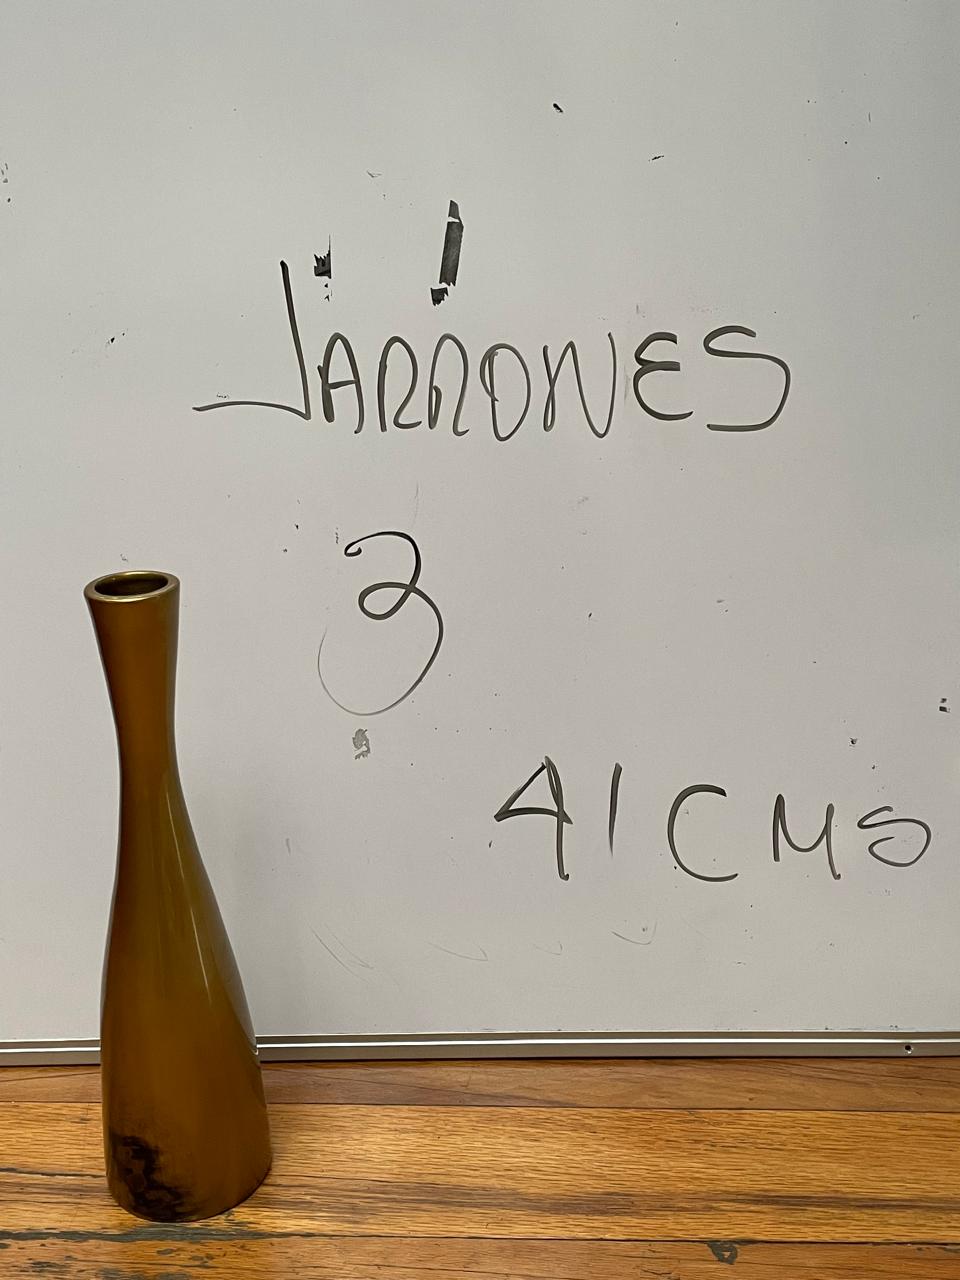 JARRONES
3
41 CMS